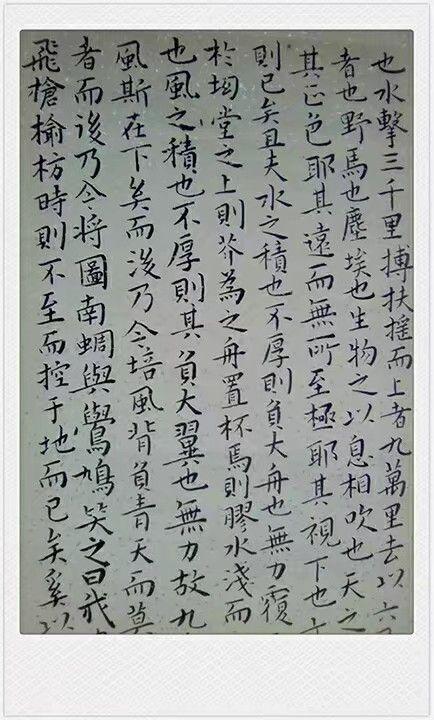 也水擊三千里搏扶摇而上者九萬里去以六
者也野馬也塵埃也生物之以息相吹也天之
其正色耶其遠而無所至極耶其視下也
則已矣且夫水之積也不厚則負大舟也無力覆
於坳堂之上則芥為之舟置杯焉則膠水淺而
也風之積也不厚則其負大翼也無力故九
風斯在下矣而後乃今培風背負青天而莫
者而後乃今將圖南蜩與鷽鳩笑之曰我
飛槍榆枋時則不至而控于地而已矣奚以